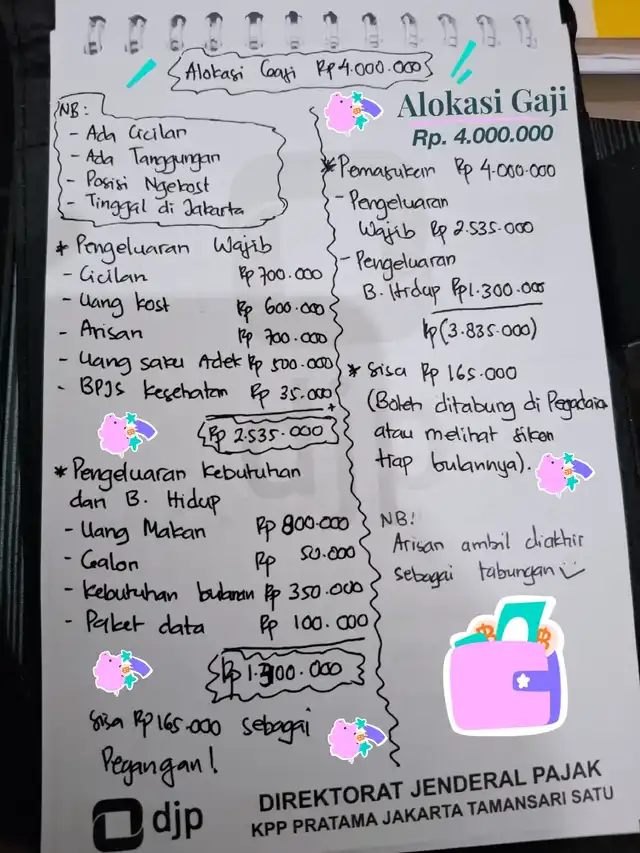 Alokasi Gaji Rp 4.000.000
NB:
- Ada Cicilan
- Ada Tanggungan
- Posisi Ngekost
- Tinggal di Jakarta
* Pengeluaran Wajib
- Cicilan Rp 700.000
- Uang kost Rp 600.000
- Arisan Rp 700.000
- Uang saku Adek Rp 500.000
- BPJS kesehatan Rp 35.000
+
Rp 2.535.000
* Pengeluaran kebutuhan
dan B. Hidup
- Uang Makan Rp 800.000
- Galon Rp 50.000
- kebutuhan bulanan Rp 350.000
- Paket data Rp 100.000
Rp 1.300.000
Sisa Rp 165.000 sebagai
Pegangan!
Alokasi Gaji
Rp. 4.000.000
* Pemasukan Rp 4.000.000
- Pengeluaran
Wajib Rp 2.535.000
- Pengeluaran
B. Hidup Rp 1.300.000
Rp (3.835.000)
* Sisa Rp 165.000
(Boleh ditabung di Pegadaian
atau melihat sikon
tiap bulannya).
NB!
Arisan ambil diakhir
sebagai tabungan
djp
DIREKTORAT JENDERAL PAJAK
KPP PRATAMA JAKARTA TAMANSARI SATU